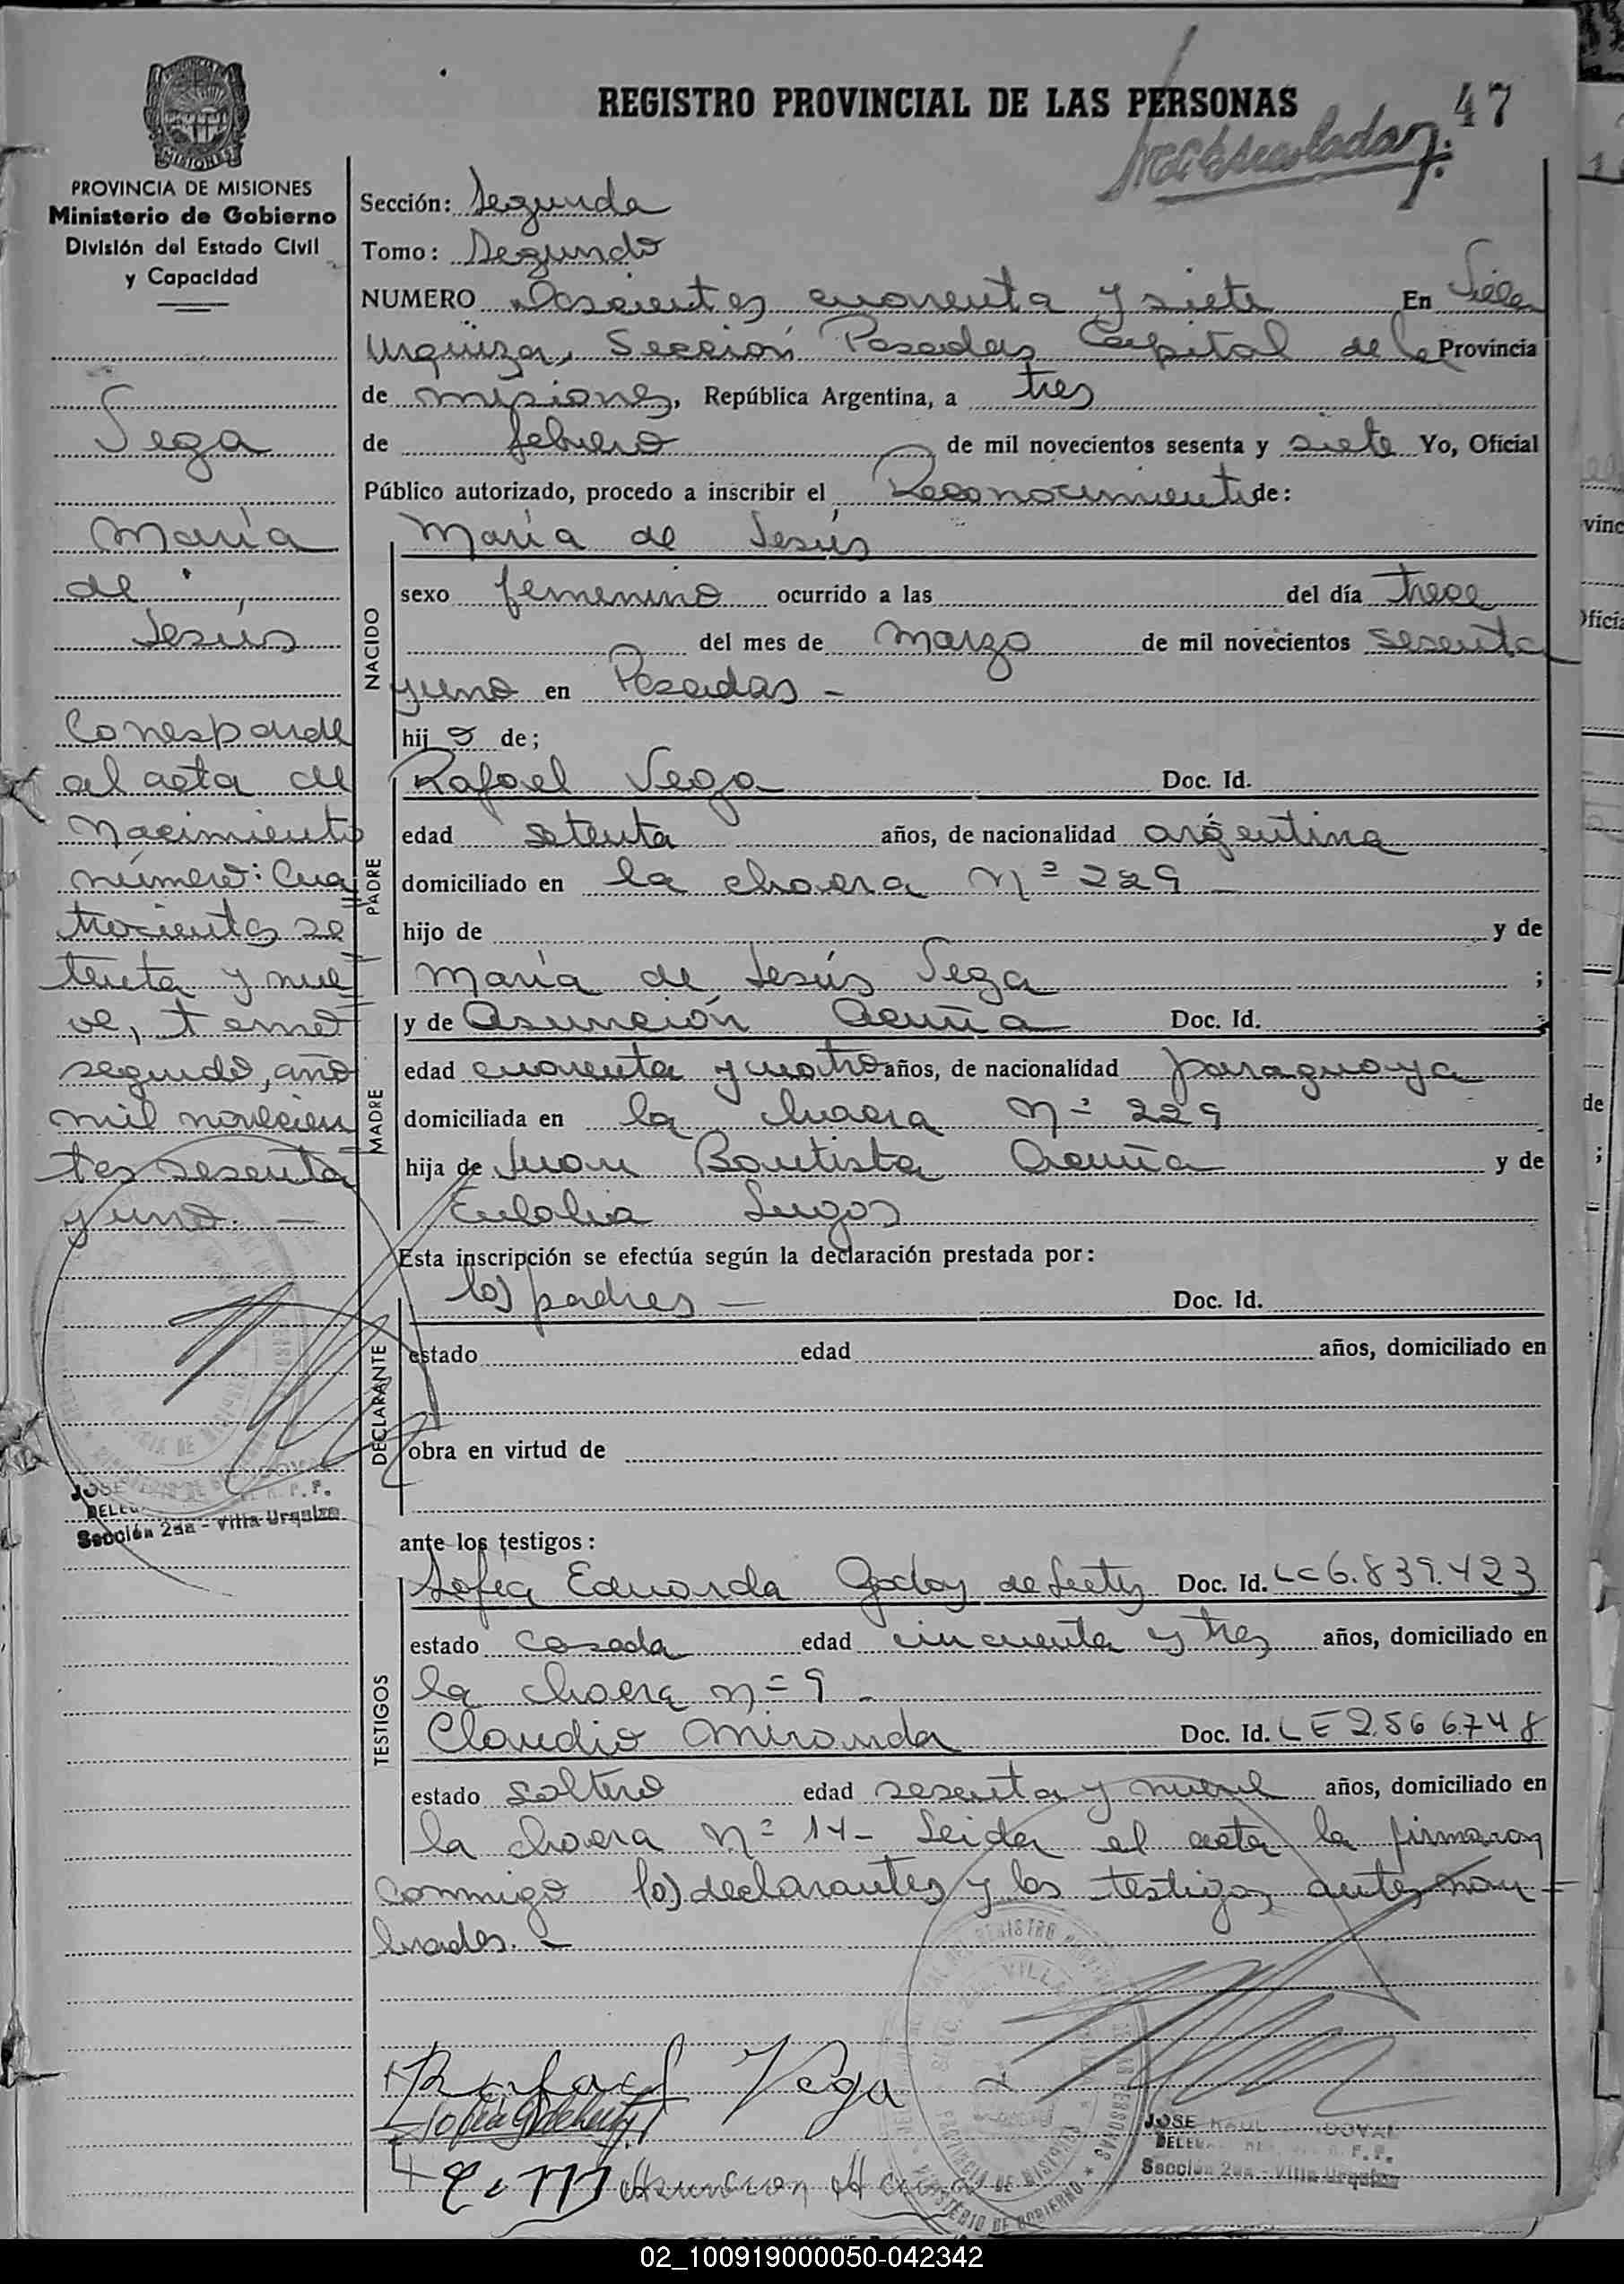 REGISTRO PROVINCIAL DE LAS PERSONAS
47
MISIONES
PROVINCIA DE MISIONES
Ministerio de Gobierno
División del Estado Civil
y Capacidad
Vega
María
de
Jesús
Corresponde
al acta de
Nacimiento
número: Cua
trocientos se
tenta y nue
ve, tomo
segundo, año
mil novecien
tos sesenta
y uno. —
JOSE
Sección 2da - Villa Urquiza
Sección: Segunda
Tomo: Segundo
NUMERO Doscientos cuarenta y siete En Villa
Urquiza, Sección Posadas Capital de la Provincia
de misiones, República Argentina, a tres
de febrero de mil novecientos sesenta y siete Yo, Oficial
Público autorizado, procedo a inscribir el Reconocimiento de:
NACIDO
María de Jesús
sexo femenino ocurrido a las del día trece
del mes de marzo de mil novecientos sesenta
y uno en Posadas -
hij a de;
PADRE
Rafael Vega Doc. Id.
edad setenta años, de nacionalidad argentina
domiciliado en la chacra Nº 229 -
hijo de y de
María de Jesús Vega ;
MADRE
y de Asunción Acuña Doc. Id.
edad cuarenta y cuatro años, de nacionalidad paraguaya
domiciliada en la chacra Nº 229
hija de Juan Bautista Acuña y de
Eulalia Lugos
Esta inscripción se efectúa según la declaración prestada por:
DECLARANTE
los padres — Doc. Id.
estado edad años, domiciliado en
obra en virtud de
ante los testigos:
TESTIGOS
Sofía Eduarda Godoy de Doc. Id. LC 6.839.423
estado casada edad cincuenta y tres años, domiciliado en
la chacra nº 9 -
Claudio Miranda Doc. Id. LE 2.566.748
estado soltero edad sesenta y nueve años, domiciliado en
la chacra Nº 14- Leida el acta la firmaron
conmigo los declarantes y los testigos antes nom-
brados. -
Rafael Vega
Asuncion Acuña
JOSE RAUL
Sección 2da - Villa Urquiza
02_100919000050-042342